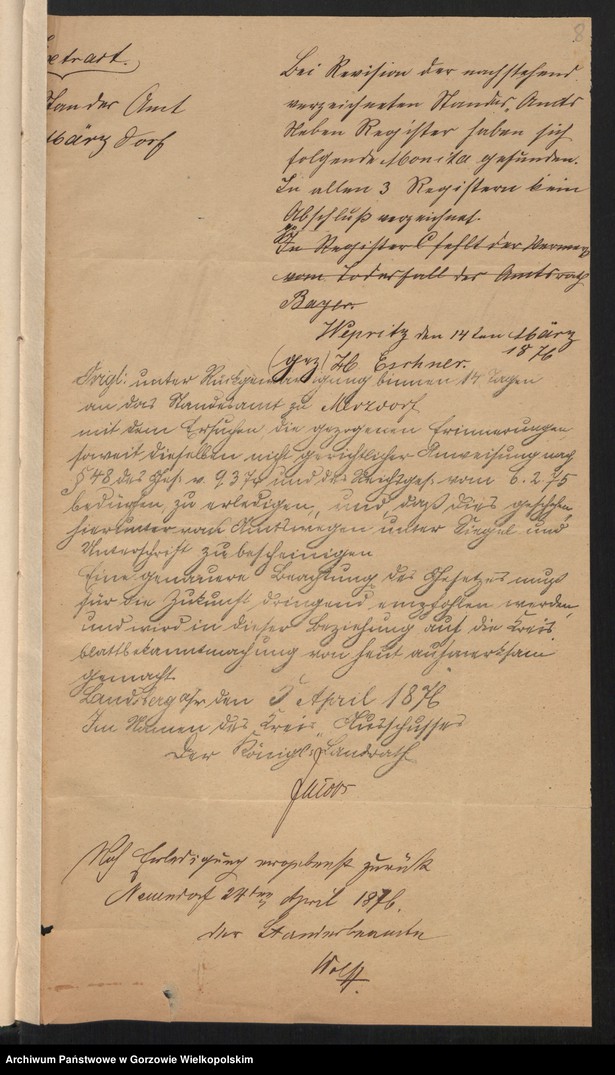 8
Extract.
Standes Amt
März dorf
Bei Revision der nachstehend
verzeichneten Standes-Amts
Neben Register haben sich
folgende Monita gefunden.
In allen 3 Registern kein
Abschluß verzeichnet.
In Register C fehlt der Vermerk
vom Todesfall des Amtsrath
Bayer.
Wepritz den 14ten März
1876
(gez) H Eschner.
unter Rückgewärtigung binnen 14 Tagen
an das Standesamt zu Merzdorf
mit dem Ersuchen die gezogenen Erinnerungen,
soweit dieselben nicht gerichtlicher Anweisung nach
§ 48 des Ges. v. 9.3.74 und des Reichsges. vom 6.2.75
bedürfen, zu erledigen, und, daß dies geschehen,
hierunter von Amtswegen unter Siegel und
Unterschrift zu bescheinigen
Eine genauere Beachtung des Gesetzes muß
für die Zukunft dringend empfohlen werden,
und wird in dieser Beziehung auf die Kreis
blattbekanntmachung von heut aufmerksam
gemacht.
Landsberg a/w den 3 April 1876
Im Namen des Kreis-Ausschusses
Der Königl: Landrath
Jacobs
Nach Erledigung ergebenst zurück
24ten April 1876.
der Standesbeamte
Wolff.
Archiwum Państwowe w Gorzowie Wielkopolskim